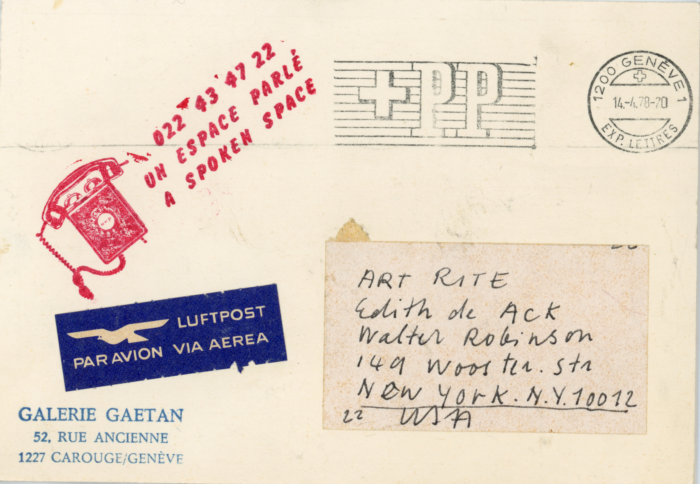 022 43 47 22
UN ESPACE PARLÉ
A SPOKEN SPACE
+PP
1200 GENÈVE 1
14.-4.78-20
EXP. LETTRES
LUFTPOST
PAR AVION VIA AEREA
GALERIE GAETAN
52, RUE ANCIENNE
1227 CAROUGE/GENÈVE
ART RITE
Edith de Ack
Walter Robinson
149 Wooster. Str
New York. N.Y. 10012
22 USA